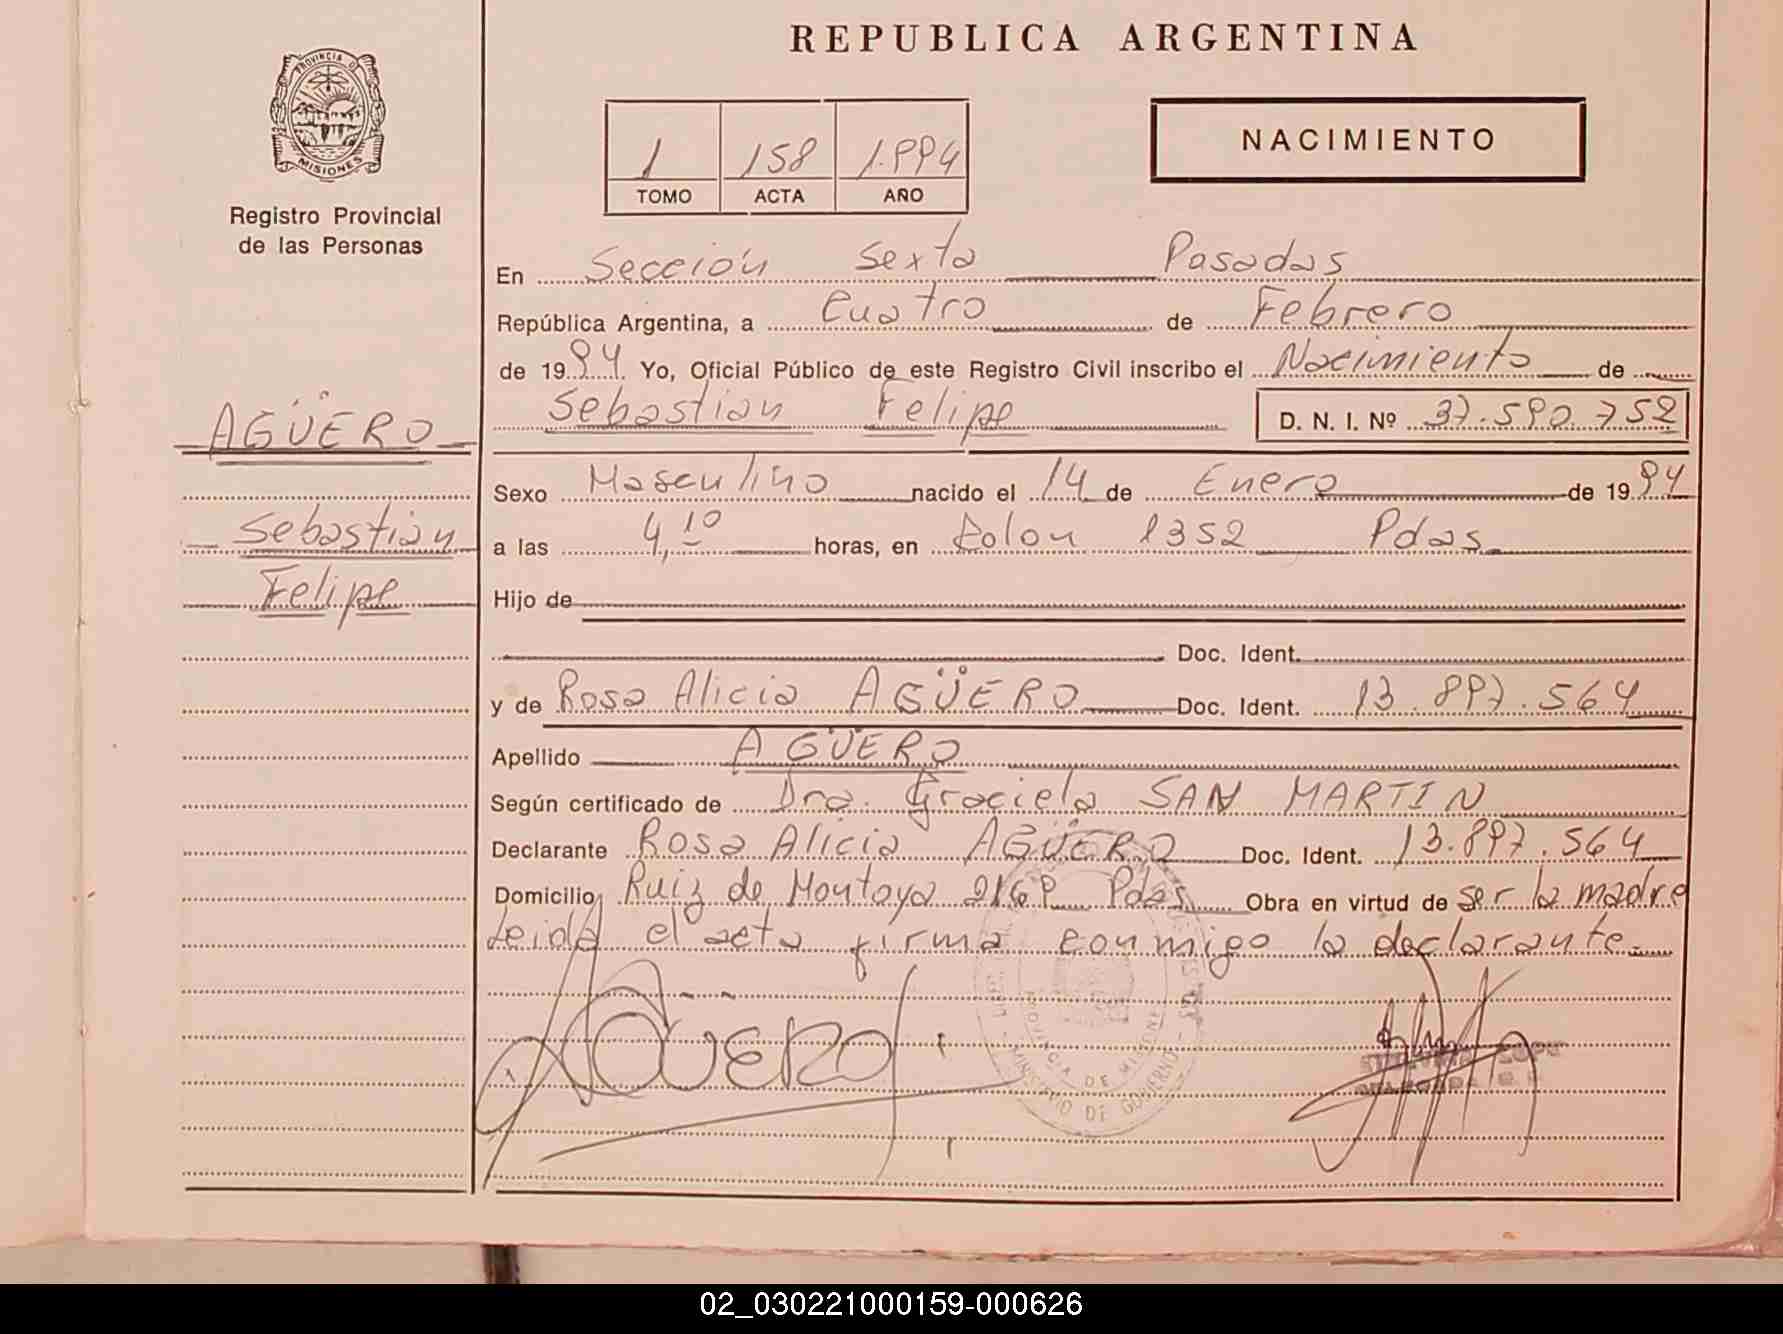 REPUBLICA ARGENTINA
PROVINCIA D
MISIONES
Registro Provincial
de las Personas
1 158 1.994
TOMO ACTA AÑO
NACIMIENTO
En Sección Sexta Posadas
República Argentina, a Cuatro de Febrero
de 1994 Yo, Oficial Público de este Registro Civil inscribo el Nacimiento de
Sebastián Felipe D. N. I. Nº 37.590.752
AGÜERO
Sebastián
Felipe
Sexo Masculino nacido el 14 de Enero de 1994
a las 4,10 horas, en Colon 1352 Pdas.
Hijo de
Doc. Ident.
y de Rosa Alicia AGÜERO Doc. Ident. 13.897.564
Apellido AGÜERO
Según certificado de Dra. Graciela SAN MARTIN
Declarante Rosa Alicia AGÜERO Doc. Ident. 13.897.564
Domicilio Ruiz de Montoya Pdas Obra en virtud de ser la madre
Leída el acta firma conmigo la declarante.
Agüero
PROVINCIA DE MISIONES
MINISTERIO DE GOBIERNO
02_030221000159-000626